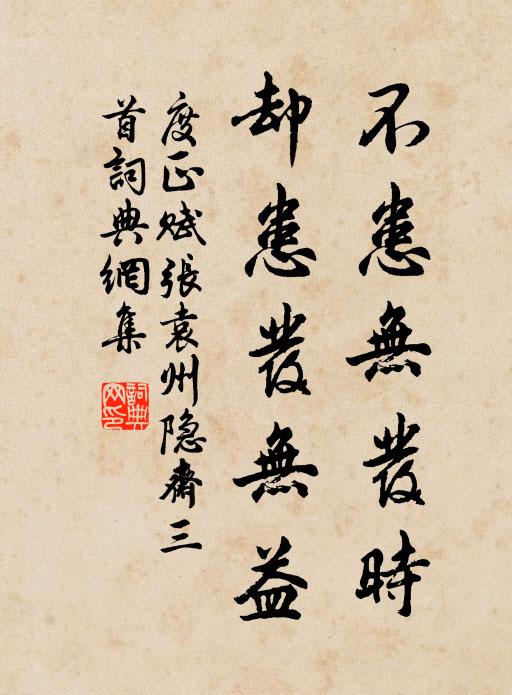 不患無發時
却患發無益
度正賦張袁州隐齋三
首詞典網集
詞典网印